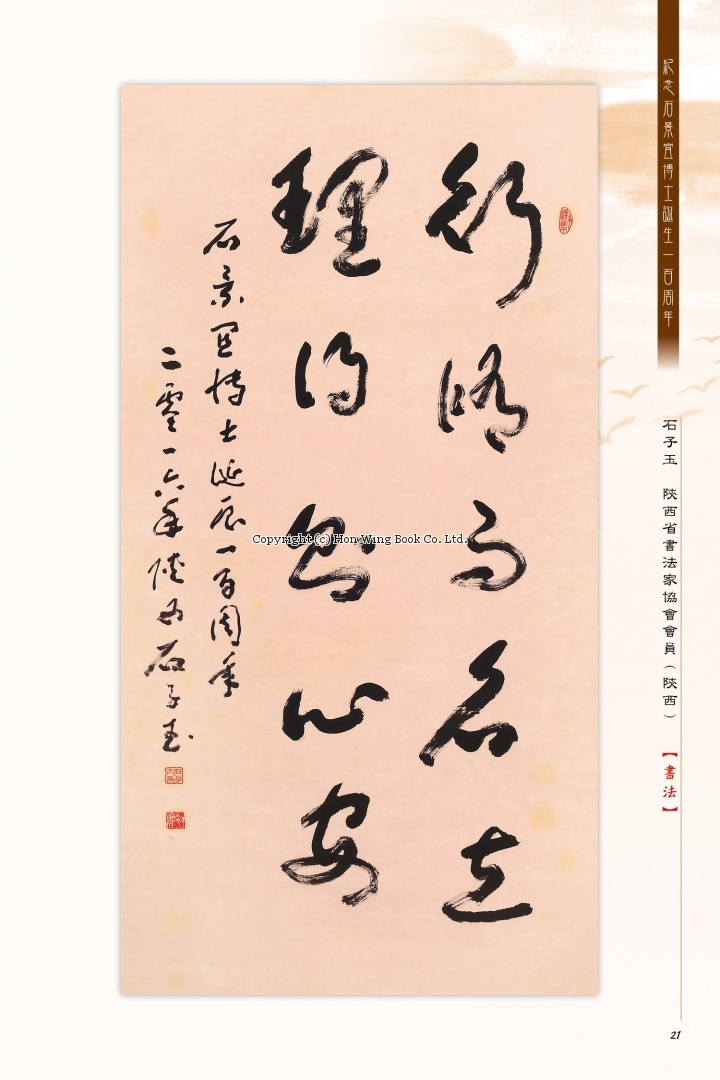 紀念石景宜博士誕生一百周年
石子玉 陝西省書法家協會會員（陝西）【書法】
行修而名立
理得則心安
石景宜博士誕辰一百周年
二零一六年陝西石子玉
Copyright (c) Hon Wing Book Co. Ltd.
21